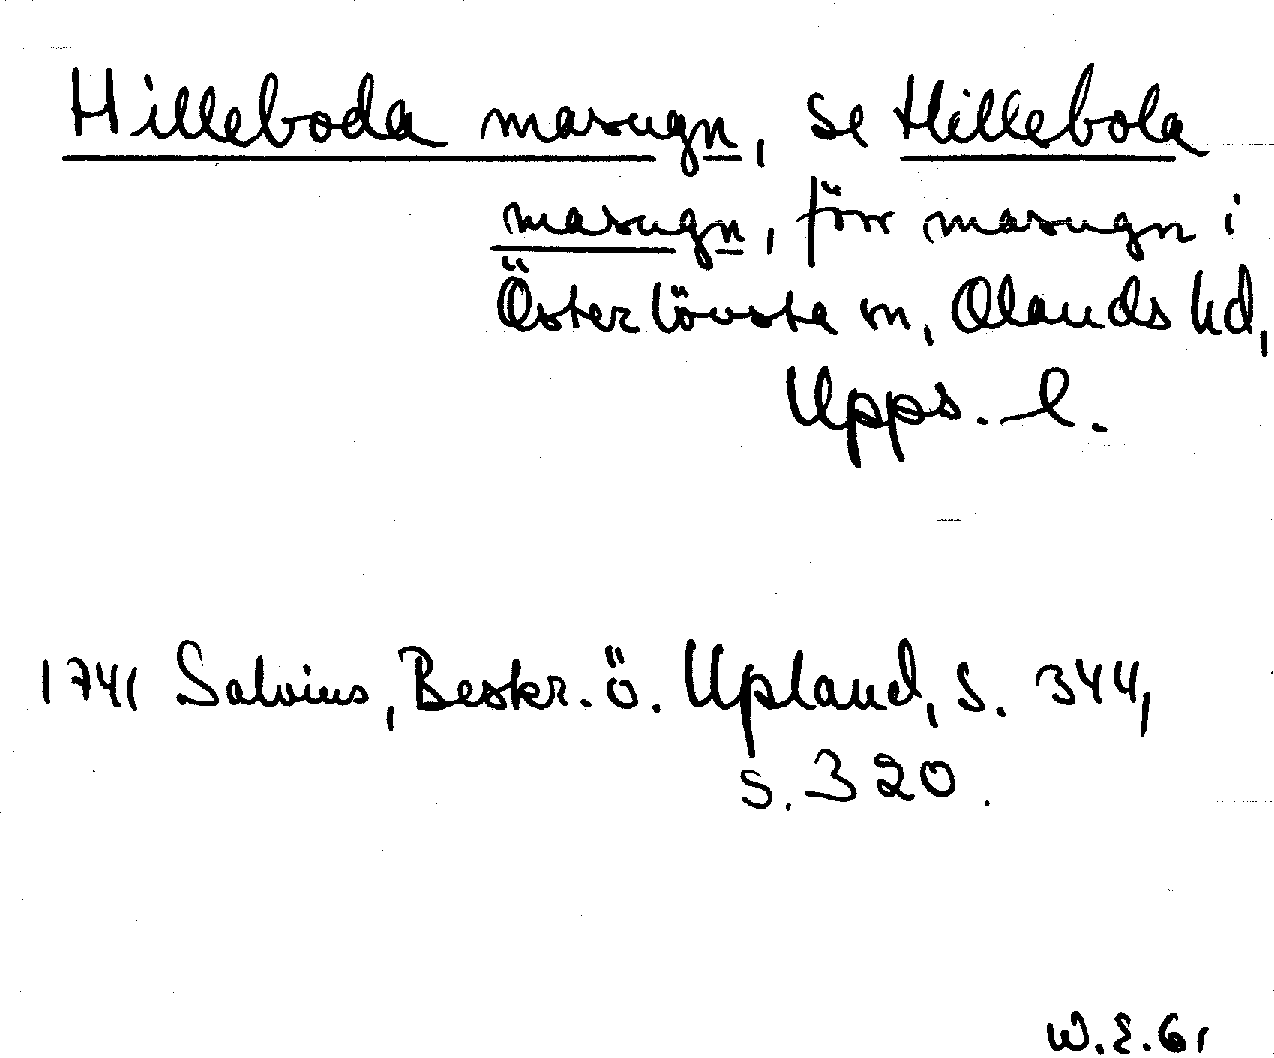 Hilleboda masugn, se Hillebola
masugn, förr masugn i
Österlövsta sn, Olands hd,
Upps. l.
1741 Salvius, Beskr. ö. Upland, s. 344,
s. 320.
W.E.61